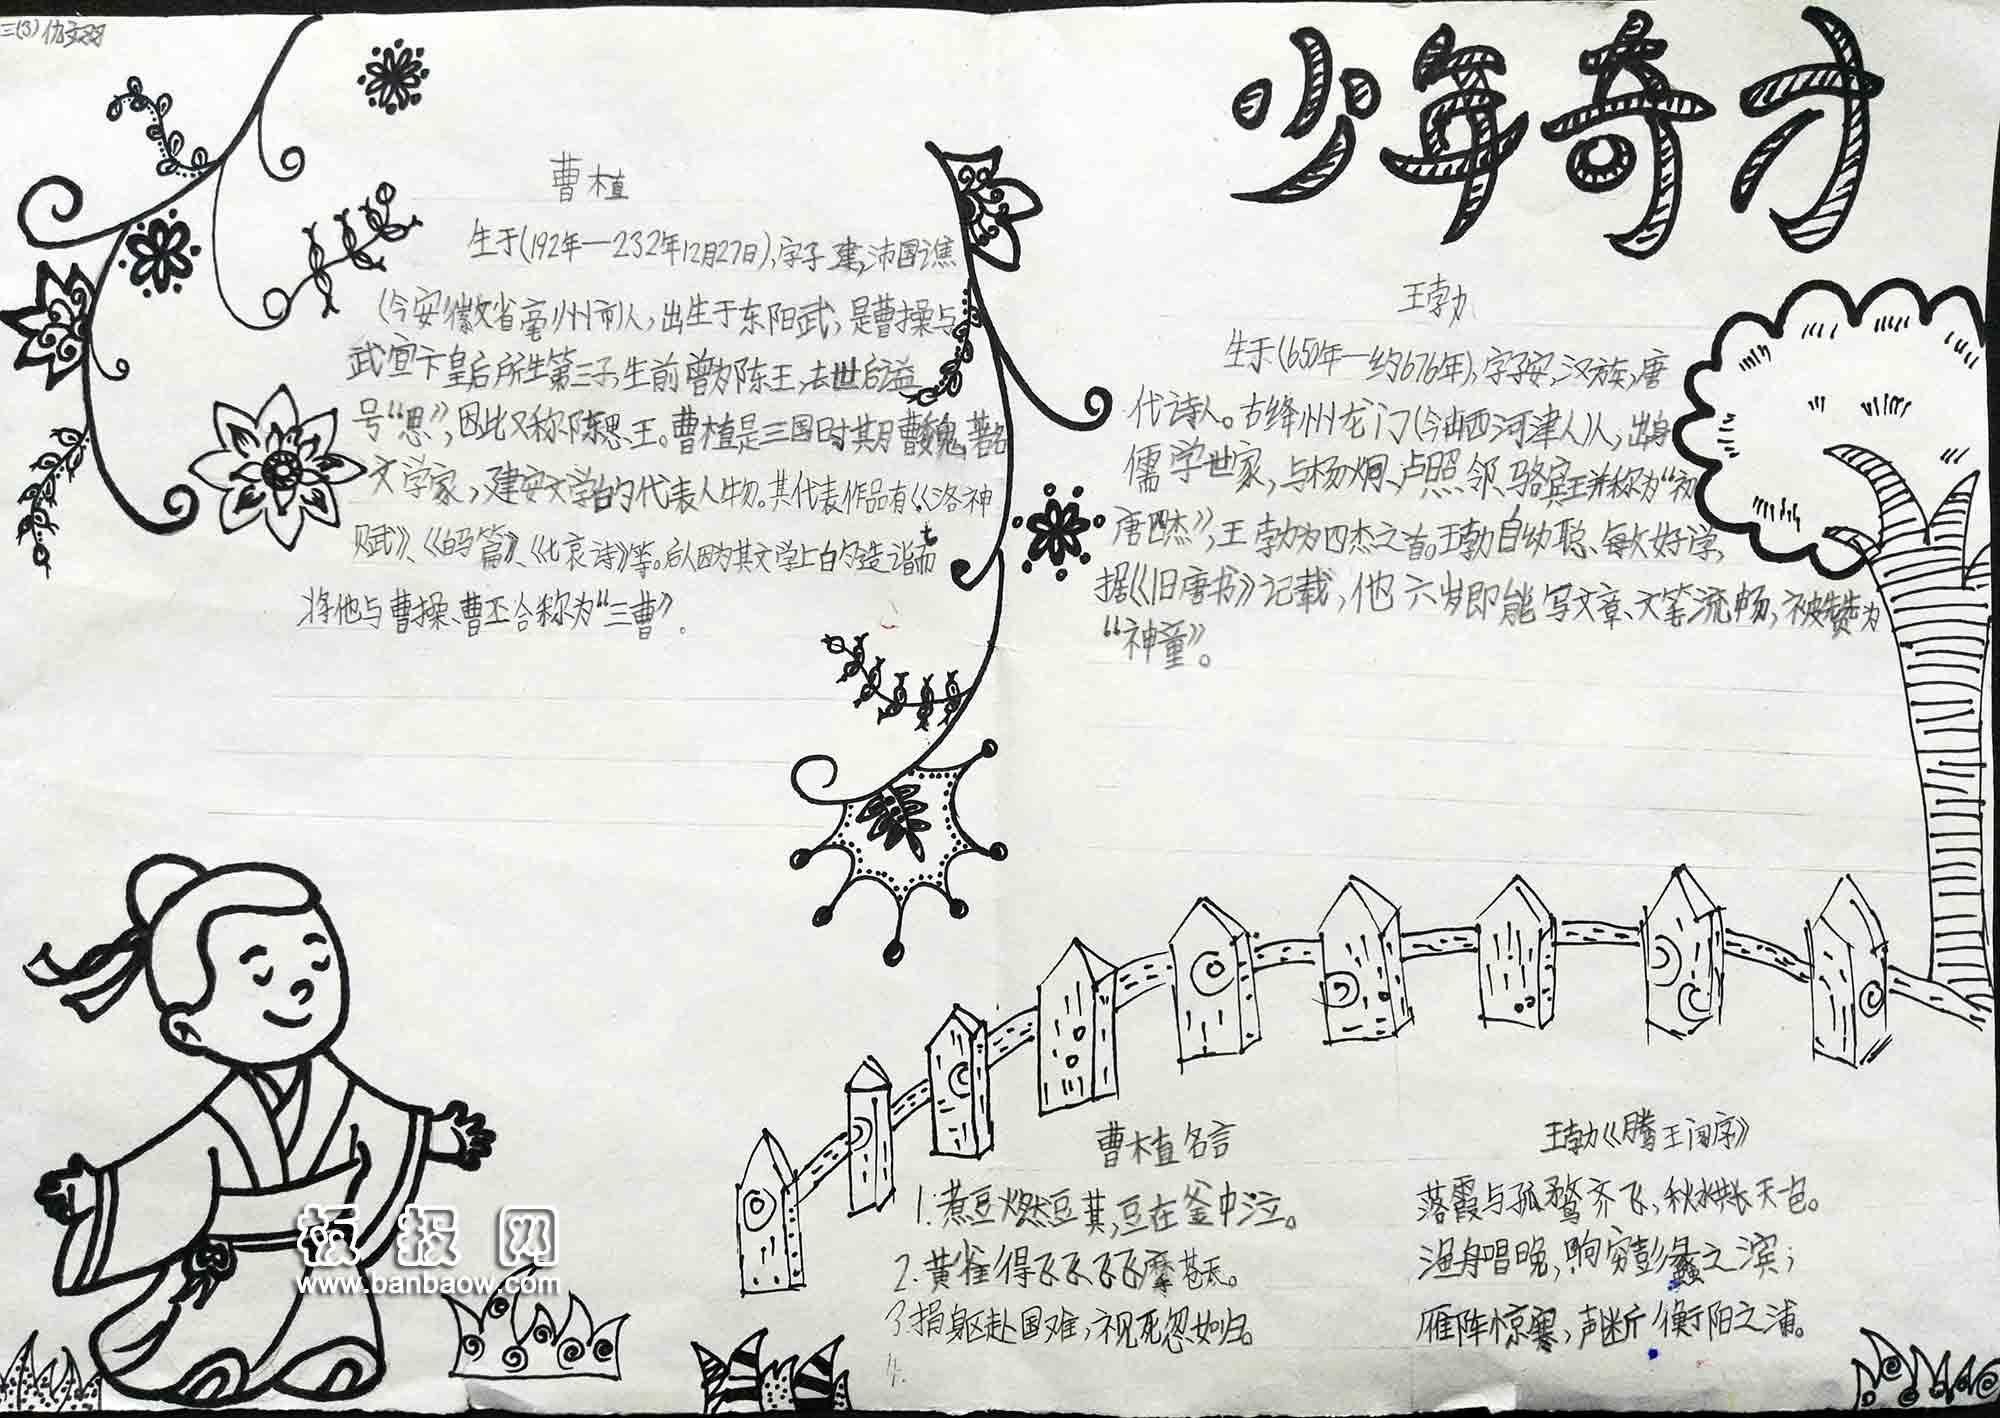 三(3)
少年奇才
曹植
生于(192年—232年12月27日),字子建,沛国谯
(今安徽省亳州市)人,出生于东阳武,是曹操与
武宣卞皇后所生第三子,生前曾为陈王,去世后谥
号“思”,因此又称陈思王。曹植是三国时期曹魏著名
文学家,建安文学的代表人物。其代表作品有《洛神
赋》、《白马篇》、《七哀诗》等。后人因为其文学上的造诣而
将他与曹操、曹丕合称为“三曹”.
王勃
生于(650年—约676年),字子安,汉族,唐
代诗人。古绛州龙门(今山西河津人)人,出身
儒学世家,与杨炯、卢照邻、骆宾王并称为“初
唐四杰”,王勃为四杰之首。王勃自幼聪、每攵好学,
据《旧唐书》记载,他六岁即能写文章、文笔流畅,被赞为
“神童”。
曹植名言
1.煮豆燃豆萁,豆在釜中泣。
2.黄雀得飞飞,飞飞摩苍天。
3.捐躯赴国难,视死忽如归。
4.
王勃《腾王阁序》
落霞与孤鹜齐飞,秋水共长天一色。
渔舟唱晚,响穷彭蠡之滨;
雁阵惊寒,声断衡阳之浦。
板报网
www.banbaow.com